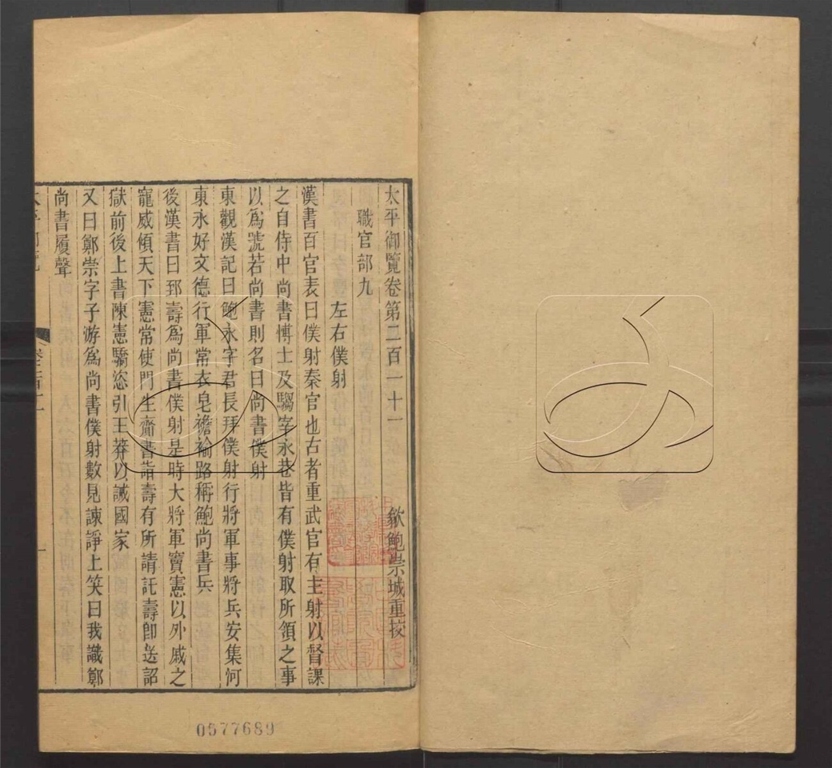 太平御覽卷第二百一十一
歙鮑崇城重挍
職官部九
左右僕射
漢書百官表曰僕射秦官也古者重武官有主射以督課
之自侍中尚書博士及騶宰永巷皆有僕射取所領之事
以爲號若尚書則名曰尚書僕射
東觀漢記曰鮑永字君長拜僕射行將軍事將兵安集河
東永好文德行軍常衣皂襜褕路稱鮑尚書兵
後漢書曰郅壽爲尚書僕射是時大將軍竇憲以外戚之
寵威傾天下憲常使門生齎書詣壽有所請託壽卽送詔
獄前後上書陳憲驕恣引王莽以誡國家
又曰鄭崇字子游爲尚書僕射數見諫諍上笑曰我識鄭
尚書履聲
0577689